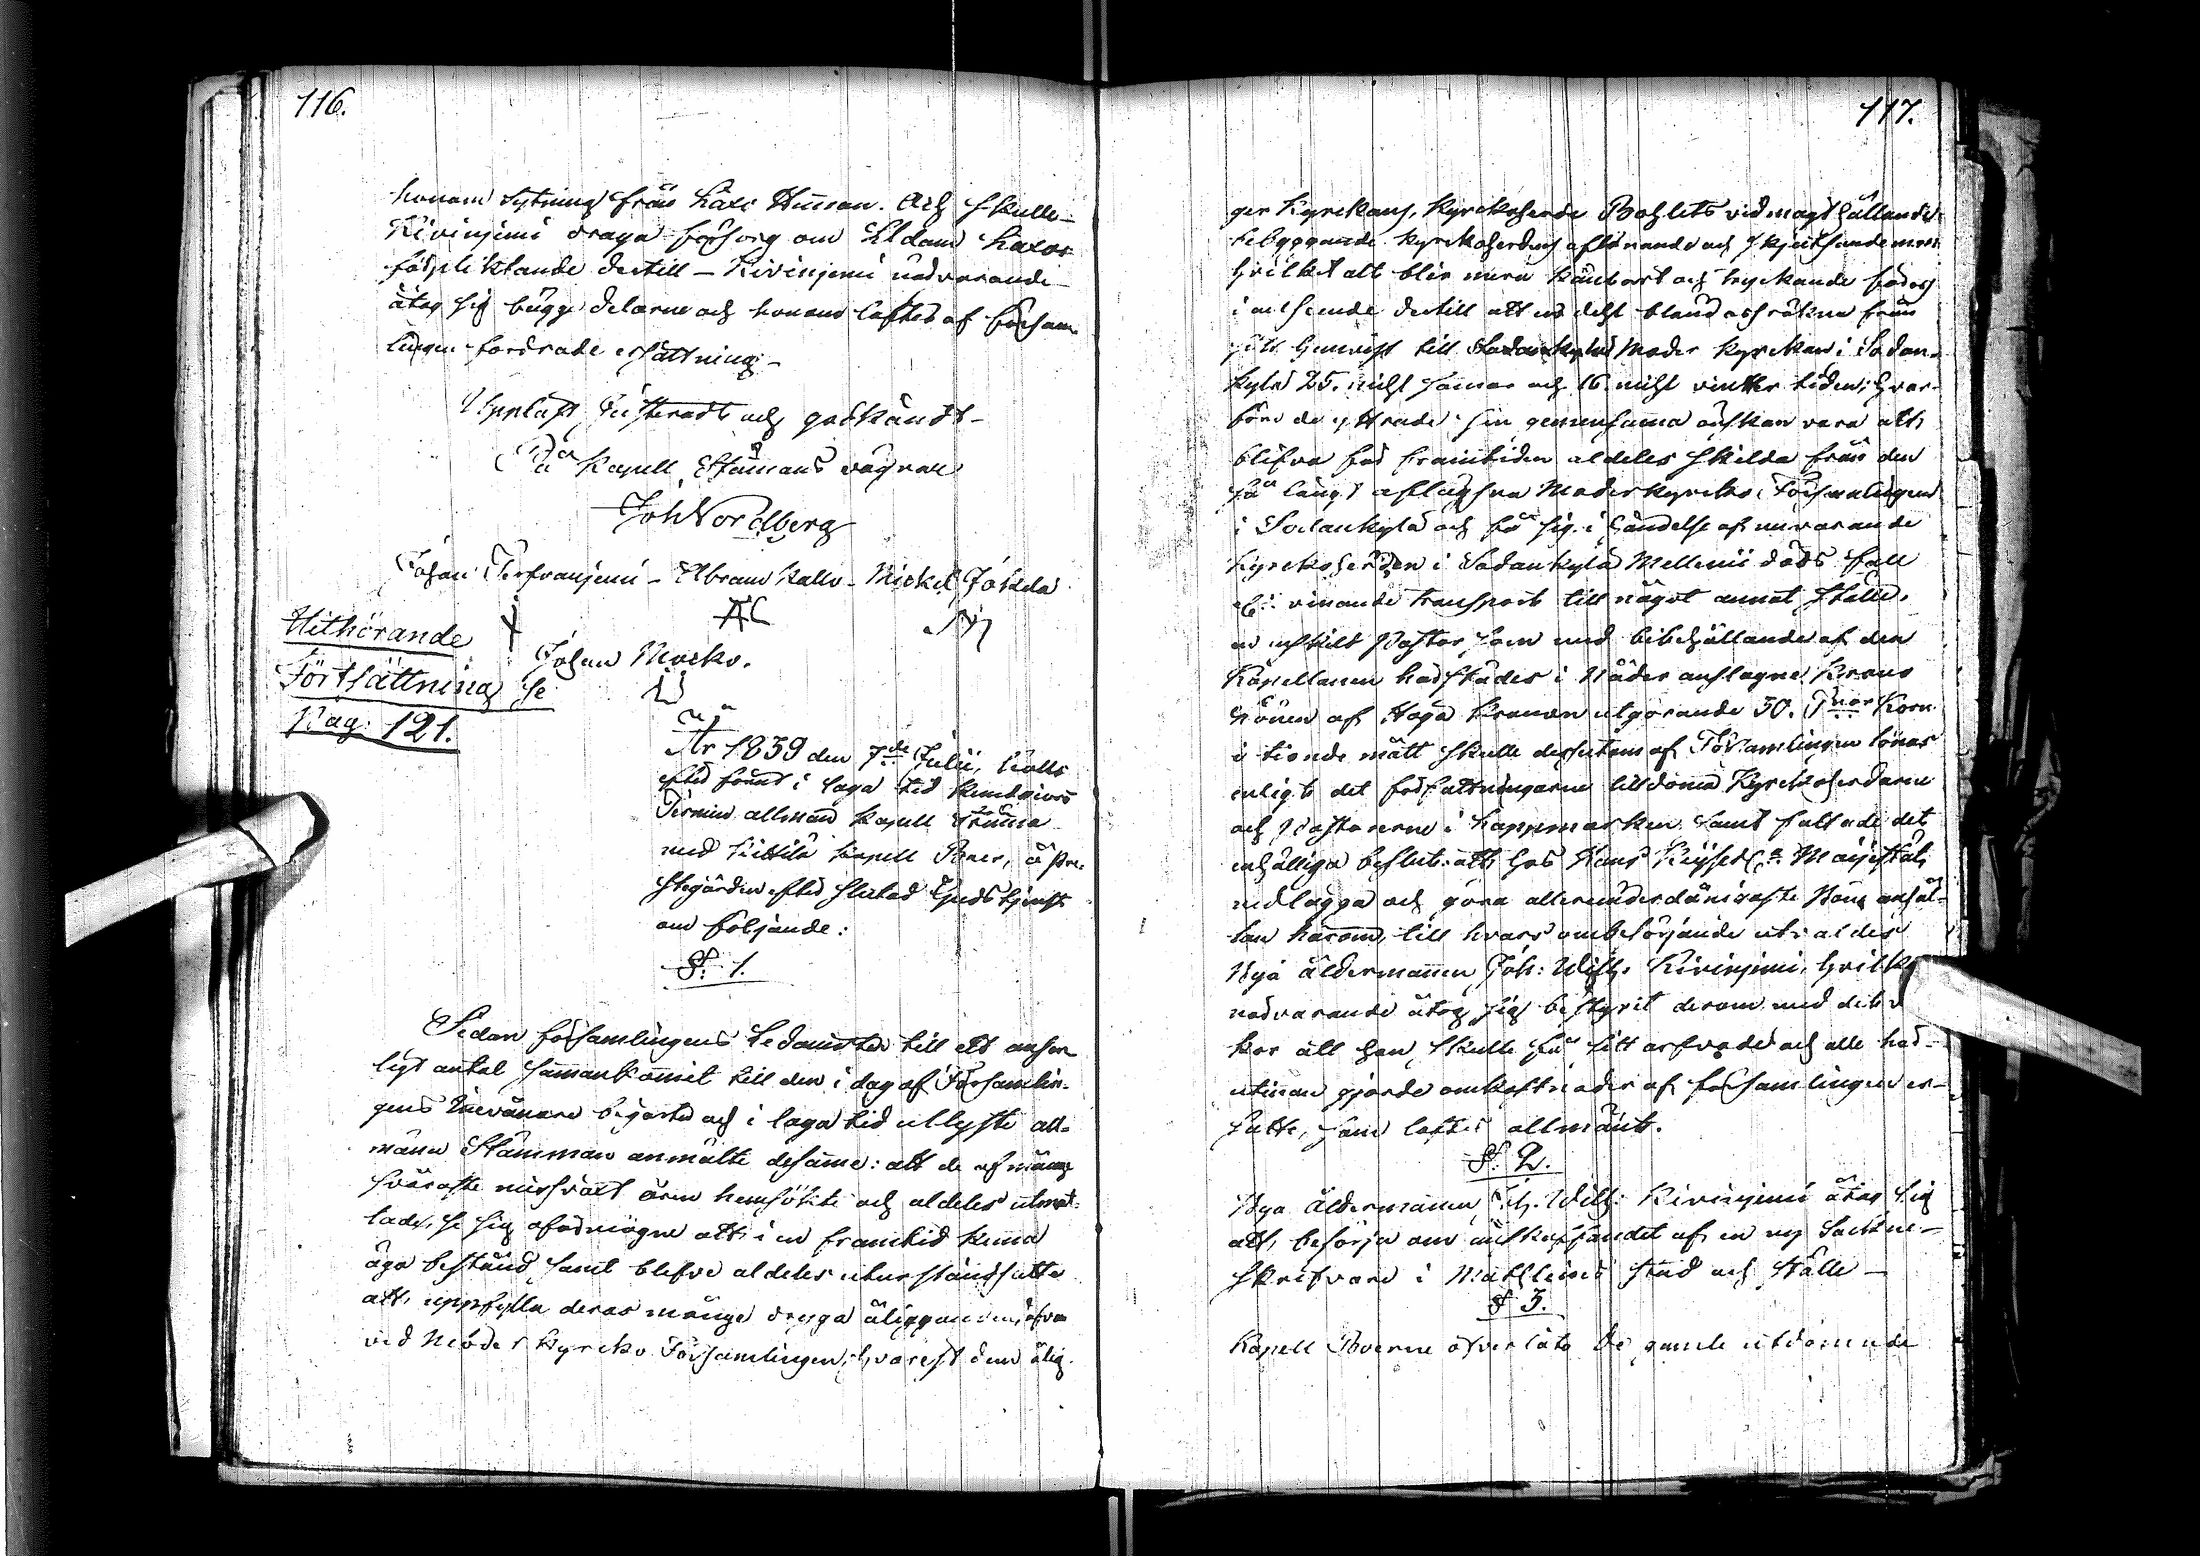 116.
honom sytning från Kari Human. Och skulle
Kivinjemi draga försorg om Eldam Kaxor
förpliktande dertill – Kivinjemi nedvarande
åtog sig bägge delarne och honom loftes af försam-
lingen fordrade ersättning –
Uppläst, Justeradt och godkändt –
På Kapell Stämans vägnar
Joh Nordberg
Johan Terfvanjemi – Abram Kallo – Mickel Jokela
Hithörande
Johan Marko.
Fortsättning se
Pag: 121.
År 1839 den 7de Julii, hölls
efter förut i laga tid kundgjord
Termin allmän Kapell Stämma
med Kittilä Kapell Boer, å Pre-
stegården efter slutad Gudstjenst
om följande:
§. 1.
Sedan församlingens Ledamöter till ett ansen-
ligt antal sammankommit till den i dag af Församlin-
gens Innevånare begärta och i laga tid utlyste all-
männa Stämman anmälte desamme: att de af mång
svåraste missväxt åren hemsökte och aldeles utmat-
tade, se sig oförmögne att i en framtid kunna
äga bestånd samt blefve aldeles utur ståndsatte
att uppfylla deras många dryga åligganden, äfven
vid Moder Kyrko Församlingen, hvarest dem ålig-
117.
ger Kyrkans, Kyrkoherde Bohlets vidmagthållande
bebyggande Kyrkoherdens aflönande och skjutsande mm
hvilket allt blir mera känbart och tryckande för os
i anseende dertill att en dehl bland oss räkna från
sitt hemvist till Moder Kyrkan i Sodan-
kylä 25. mihl somar och 16 mihl vinter tiden; hvar-
före de yttrade sin gemensamma önskan vara att
blifva för framtiden aldeles skilda från den
så långt aflägsna Moderkyrko Församlingen
i Sodankylä och få sig i händelse af nuvarande
Kyrkoherden i Sodankylä Mellenii döds fall
eller vinande transport till något annat ställe,
en enskild Pastor som med bibehållande af den
Kapellanen härstädes i Nåder anslagne Krono
Lönen af Höga Kronan utgörande 30. Tnor Korn
i tionde mått skulle dessutom af Församlingen lönas
enligt det författningarne tilldömma Kyrkoherdarne
och Pastorerne i Lappmarken samt fattade det
enhälliga beslut: att hos Hans Kejserl:a Majestät
nedlägga och göra allerunderdånigaste Böne ansök-
tan härom, till hvars ombesörjande utvaldes
Nya åldermannen Joh: Wilh. Kivinjemi, hvilken
nedvarande åtog sig bestyret derom med det v
kor att han skulle få sitt arfvode och alle här-
utinnan gjorde omkostnader af församlingen er-
satte, som loftes allmänt.
§. 2.
Nya åldermannen Joh. Wilh: Kivinjemi åtog sig
att besörja om anskaffandet af en ny Sockne-
skrifvare i Matleines stad och ställe –
§ 3.
Kapell Boerne öfverläto de gamle utdömude